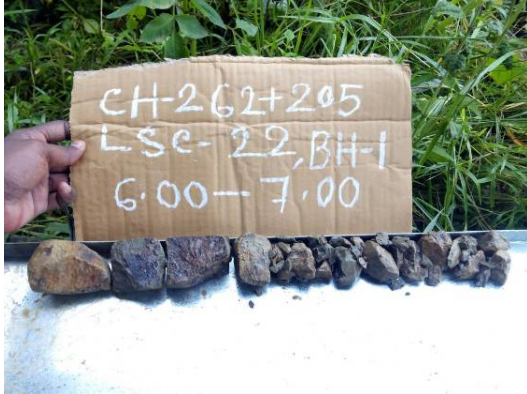 CH-262+205
LSC-22, BH-1
6.00-7.00